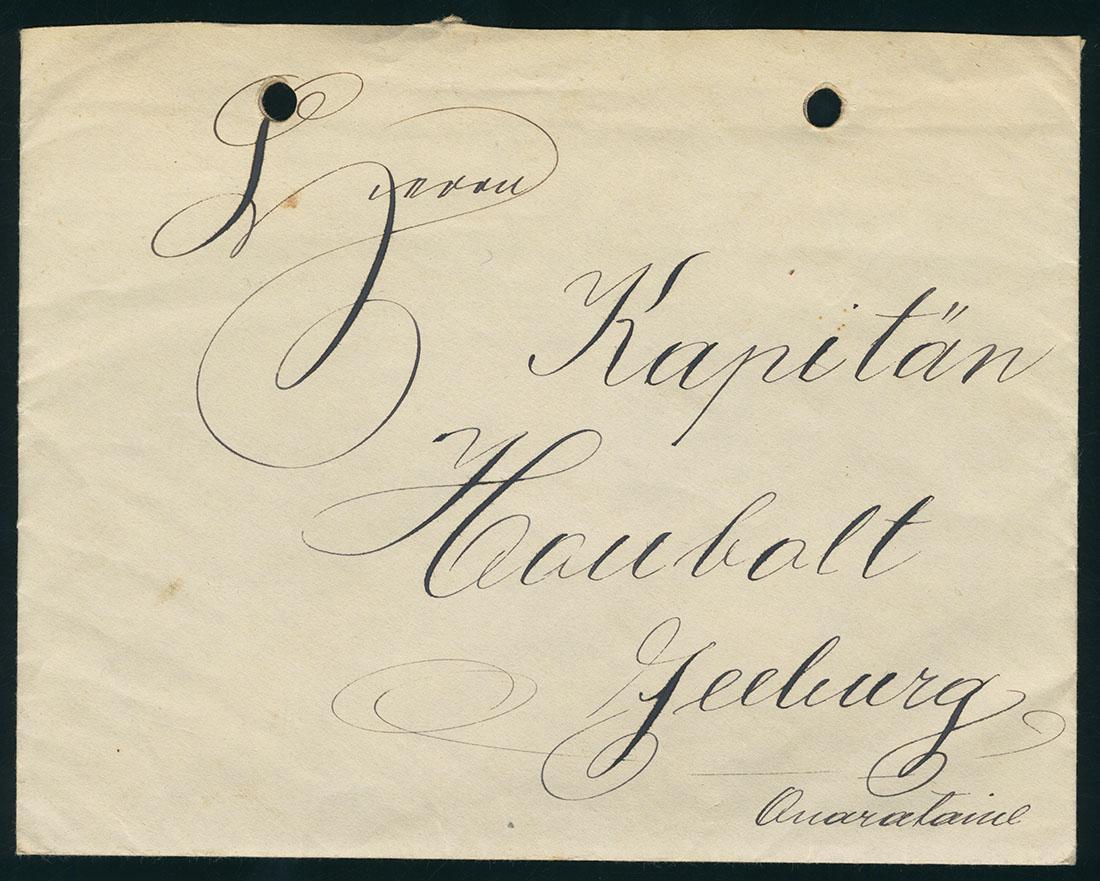 Herrn
Kapitän
Houbolt
Seeburg
Quarataine